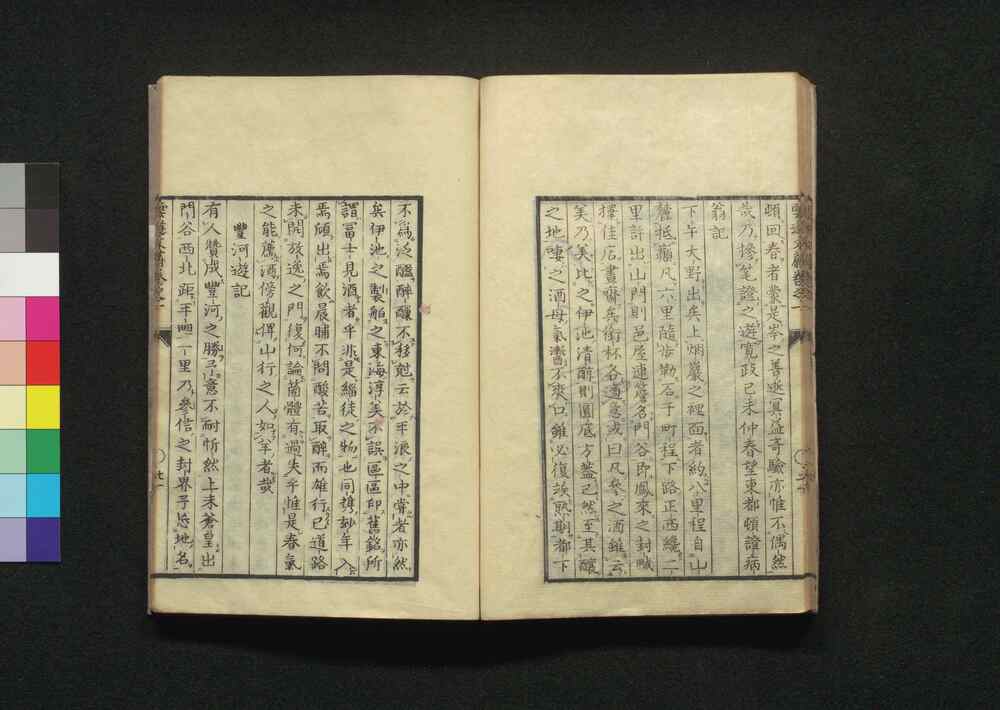 頓回春者蓋是岑之善巫冥益奇驗亦惟不偶然
哉乃擦筆證之遊寬政己未仲春望東都頓證病
翁記
下午大野出矣上烟巖之裡面者約八里程自山
麓抵凡六里隨步勒石千町程下路正西纔二
里許出山門則邑屋連甍名門谷即鳳來之封域
擇佳店晝齋兵衛杯各適意或曰凡參之酒雖云
美乃美比之伊池清醇則圓底方蓋已然至其釀
之地嘗之酒母氣濳不爽口雖必復埃熟期都下
不為泛醞醉釀不移尅云於平浪之中嘗者亦然
矣伊池之製舶之東海淳美不誤區區印舊銘所
謂冨士見酒者乎非是緇徒之物也同携妙年入
焉傾出焉飲晨晡不問酸苦取醉而雄行已道路
未開放逸之門復何論蘭體有過失乎惟是春氣
之能薦酒傍觀憚山行之人如羊者哉
豐河遊記
有人贊成豐河之勝予意不耐忻然上未蒼皇出
門谷西北距平一里乃參信之封界乎地名